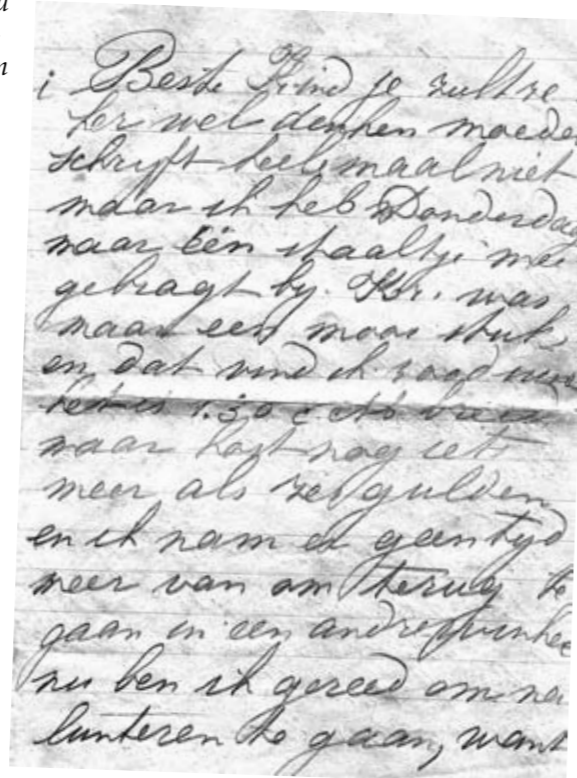 Beste Kind je zult ze
ker wel denken moeder
schryft heelemaal niet
maar ik heb Donderdag
maar één staaltje mee
gebragt by. Kr. was
maar een mooi stuk
en dat vind ik zood
het is 1.30 breed
maar kost nog iets
meer als zes gulden
en ik nam er geen tyd
meer van om terug te
gaan in een andre winkel
nu ben ik gereed om na
lunteren te gaan, want